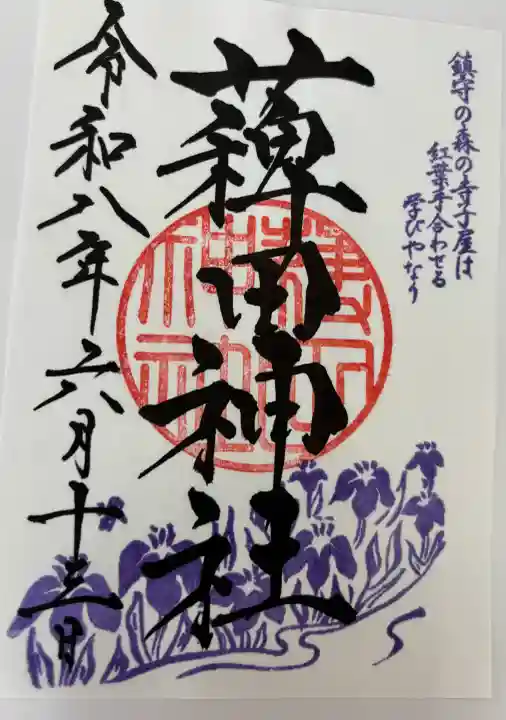 鎮守の森の寺子屋は
紅葉手合わせる
学びやなり
薭田神社
令和八年六月十三日